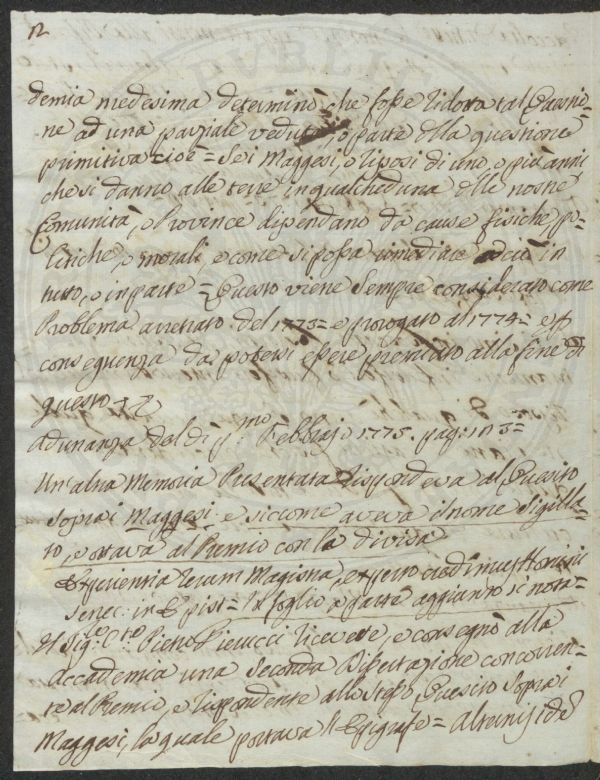 12
demia medesima determinò, che fosse ridotta tal Question-
ne ad una parziale veduta, o parte della questione
primitiva cioè = Se i Maggesi, o riposi di uno, o più anni
che si danno alle terre in qualcheduna delle nostre
Comunità, o Province dipendano da cause fisiche, po-
litiche, o morali, e come si possa rimediare a ciò in
tutto, o in parte = Questo viene sempre considerato come
Problema arretrato del 1773 = e prorogato al 1774 = e p
conseguenza da potersi essere premiato alla fine di
questo
Adunanza del dì p.mo Febbrajo 1775. pag: 103
Un'altra Memoria Presentata rispondeva al Quesito
sopra i Maggesi: e siccome aveva il nome sigilla-
to, e ostava al Premio con la divisa
Experientia rerum Magistra, et
Senec: in Epist = In foglio a parte aggiunto si nota =
Il Sig.e Cte. Pietro Pierucci ricevette, e consegnò alla
Accademia una Seconda Dissertazione concorren-
te al Premio, e rispondente allo stesso Quesito sopra i
Maggesi, la quale portava l'Epigrafe =